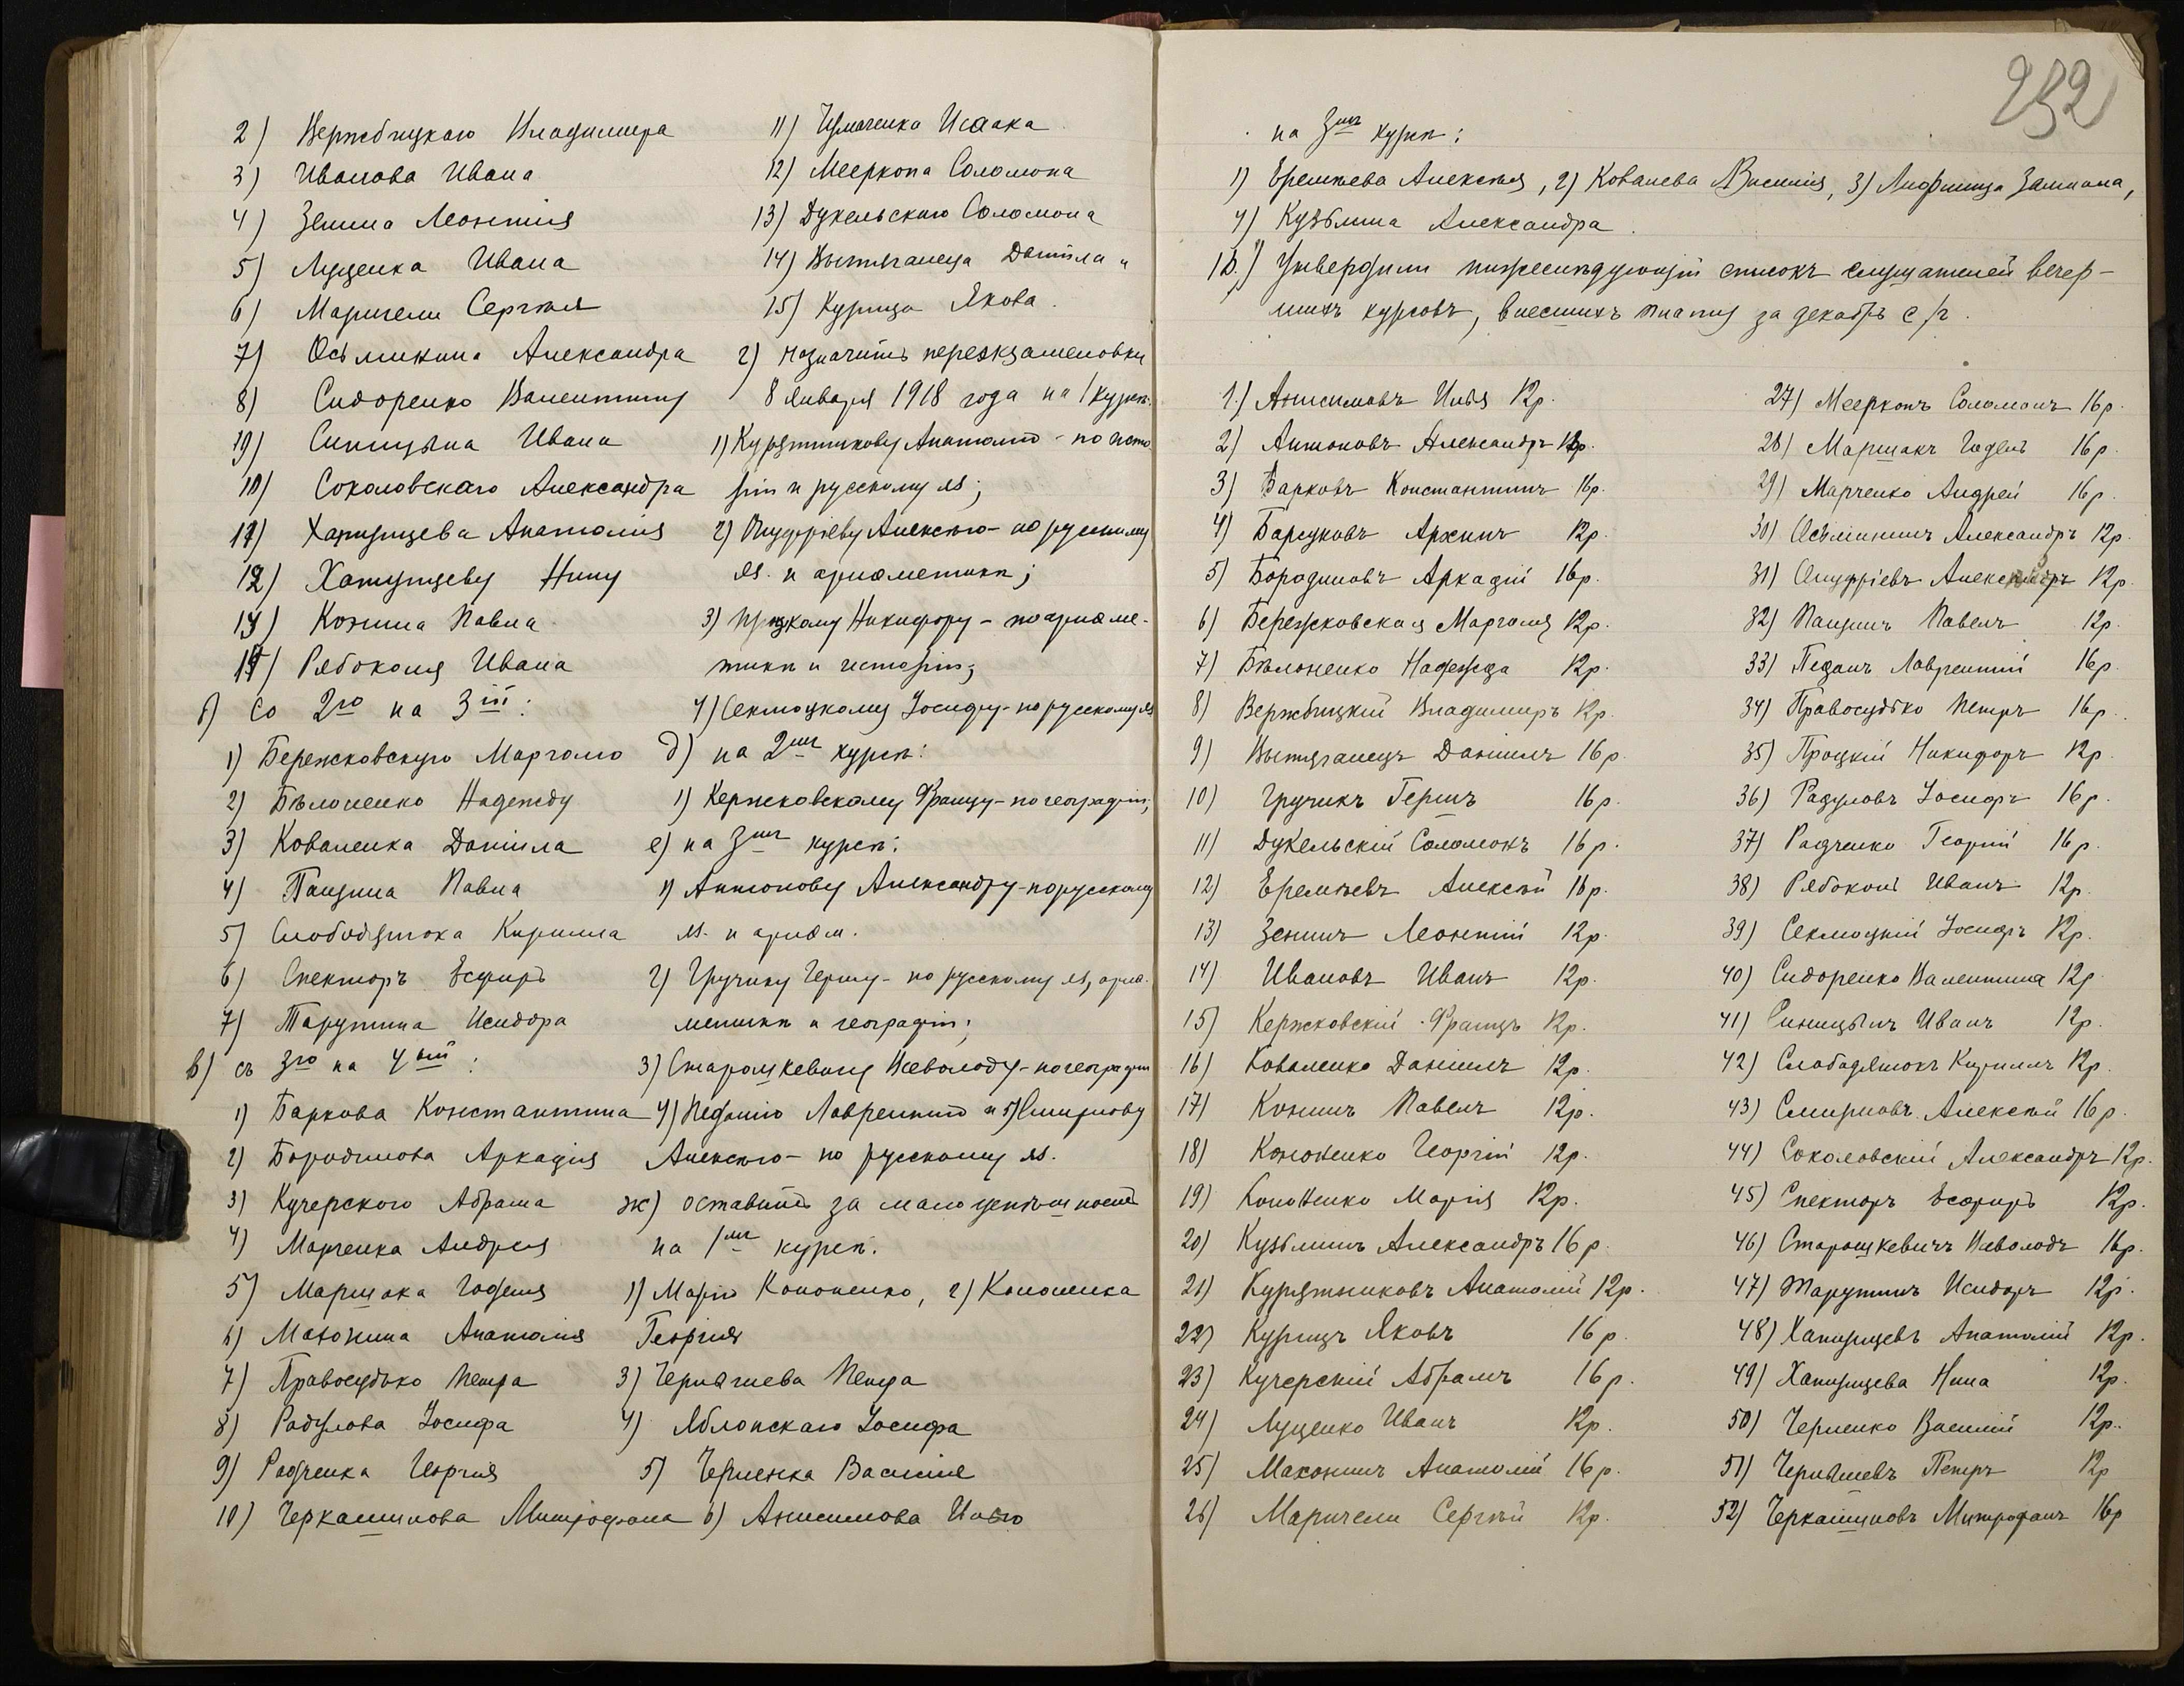 2) Вержбицкаго Владимира
3) Иванова Ивана
4) Зенина Леонтія
5) Луценка Ивана
6) Маричели Сергѣя
7) Осьминина Александра
8) Сидоренко Валентину
9) Синицына Ивана
10) Соколовскаго Александра
11) Хапирцева Анатолія
12) Хапирцеву Нину
13) Конина Павла
14) Рябоконя Ивана
б) со 2го на 3ій:
1) Бережковскую Марголю
2) Бѣлоненко Надежду
3) Коваленка Даніила
4) Панцина Павла
5) Слободянюка Кирилла
6) Спекторъ Есфирь
7) Тарутина Исидора
в) съ 3го на 4ый:
1) Баркова Константина
2) Бородинова Аркадія
3) Кучерского Абрама
4) Марченка Андрея
5) Маршака Годеля
6) Махонина Анатолія
7) Правосудько Петра
8) Радулова Іосифа
9) Радченка Георгія
10) Черкашинова Митрофана
11) Чумаченка Исаака
12) Мееркопа Соломона
13) Дукельскаго Соломона
14) Вытяганеца Даніила и
15) Курица Якова.
г) назначить переэкзаменовки
8 января 1918 года на 1 курсѣ.
1) Курятникову Анатолію - по исто
ріи и русскому яз;
2) Онуфріеву Алексѣю - по русскому
яз. и ариѳметикѣ;
3) Процкому Никифору - по ариѳме-
тикѣ и исторіи;
4) Секмоцкому Іосифу - по русскому яз
д) на 2мъ курсѣ:
1) Кержковскому Францу - по географіи;
е) на 3мъ курсѣ:
1) Антонову Александру - по русскому
яз. и ариѳм.
2) Гручику Гершу - по русскому яз, ариѳ.
метикѣ и географіи;
3) Старошкевичу Всеволоду - по географіи
4) Педаню Лаврентію и 5) Смирнову
Алексѣю - по русскому яз.
ж) оставить за малоуспѣшность
на 1мъ курсѣ:
1) Марію Кононенко, 2) Кононенка
Георгія
3) Чернышева Петра
4) Яблонскаго Іосифа
5) Черненка Василія
6) Анисимова Илью
252
на 3мъ курсѣ:
1) Еремѣева Алексѣя, 2) Ковалева Василія, 3) Лифшица Залмана,
4) Кузьмина Александра.
Утвердили нижеслѣдующій списокъ слушателей вечер-
нихъ курсовъ, внесшихъ плату за декабрь с/г.
1.) Анисимовъ Илья 12р.
2) Антоновъ Александръ
3) Барковъ Константинъ 16р.
4) Барсуковъ Архипъ 12р.
5) Бородиновъ Аркадій 16р.
6) Бережковская Марголя 12р.
7) Бѣлоненко Надежда 12р.
8) Вержбицкій Владимиръ 12р.
9) Вытяганецъ Даніилъ 16р.
10) Гручикъ Гершъ 16р.
11) Дукельскій Соломонъ 16р.
12) Еремѣевъ Алексѣй 16р.
13) Зенинъ Леонтій 12р.
14) Ивановъ Иванъ 12р.
15) Кержковскій Францъ 12р.
16) Коваленко Даніилъ 12р.
17) Конинъ Павелъ 12р.
18) Кононенко Георгій 12р.
19) Кононенко Марія 12р.
20) Кузьминъ Александръ 16р.
21) Курятниковъ Анатолій 12р.
22) Курицъ Яковъ 16р.
23) Кучерскій Абрамъ 16р.
24) Луценко Иванъ 12р.
25) Махонинъ Анатолій 16р.
26) Маричели Сергѣй 12р.
27) Мееркопъ Соломонъ 16р.
28) Маршакъ Годель 16р.
29) Марченко Андрей 16р.
30) Осьмининъ Александръ 12р.
31) Онуфріевъ 12р.
32) Панцинъ Павелъ 12р.
33) Педань Лаврентій 16р.
34) Правосудько Петръ 16р.
35) Процкій Никифоръ 12р.
36) Радуловъ Іосифъ 16р.
37) Радченко Георгій 16р.
38) Рябоконь Иванъ 12р.
39) Секмоцкій Іосифъ 12р.
40) Сидоренко Валентина 12р
41) Синицынъ Иванъ 12р.
42) Слободянюкъ Кириллъ 12р.
43) Смирновъ Алексѣй 16р.
44) Соколовскій Александръ 12р.
45) Спекторъ Есфирь 12р.
46) Старошкевичъ Всеволодъ 16р.
47) Тарутинъ Исидоръ 12р.
48) Хапирцевъ Анатолій 12р.
49) Хапирцева Нина 12р.
50) Черненко Василій 12р.
51) Чернышевъ Петръ 12р
52) Черкашиновъ Митрофанъ 16р